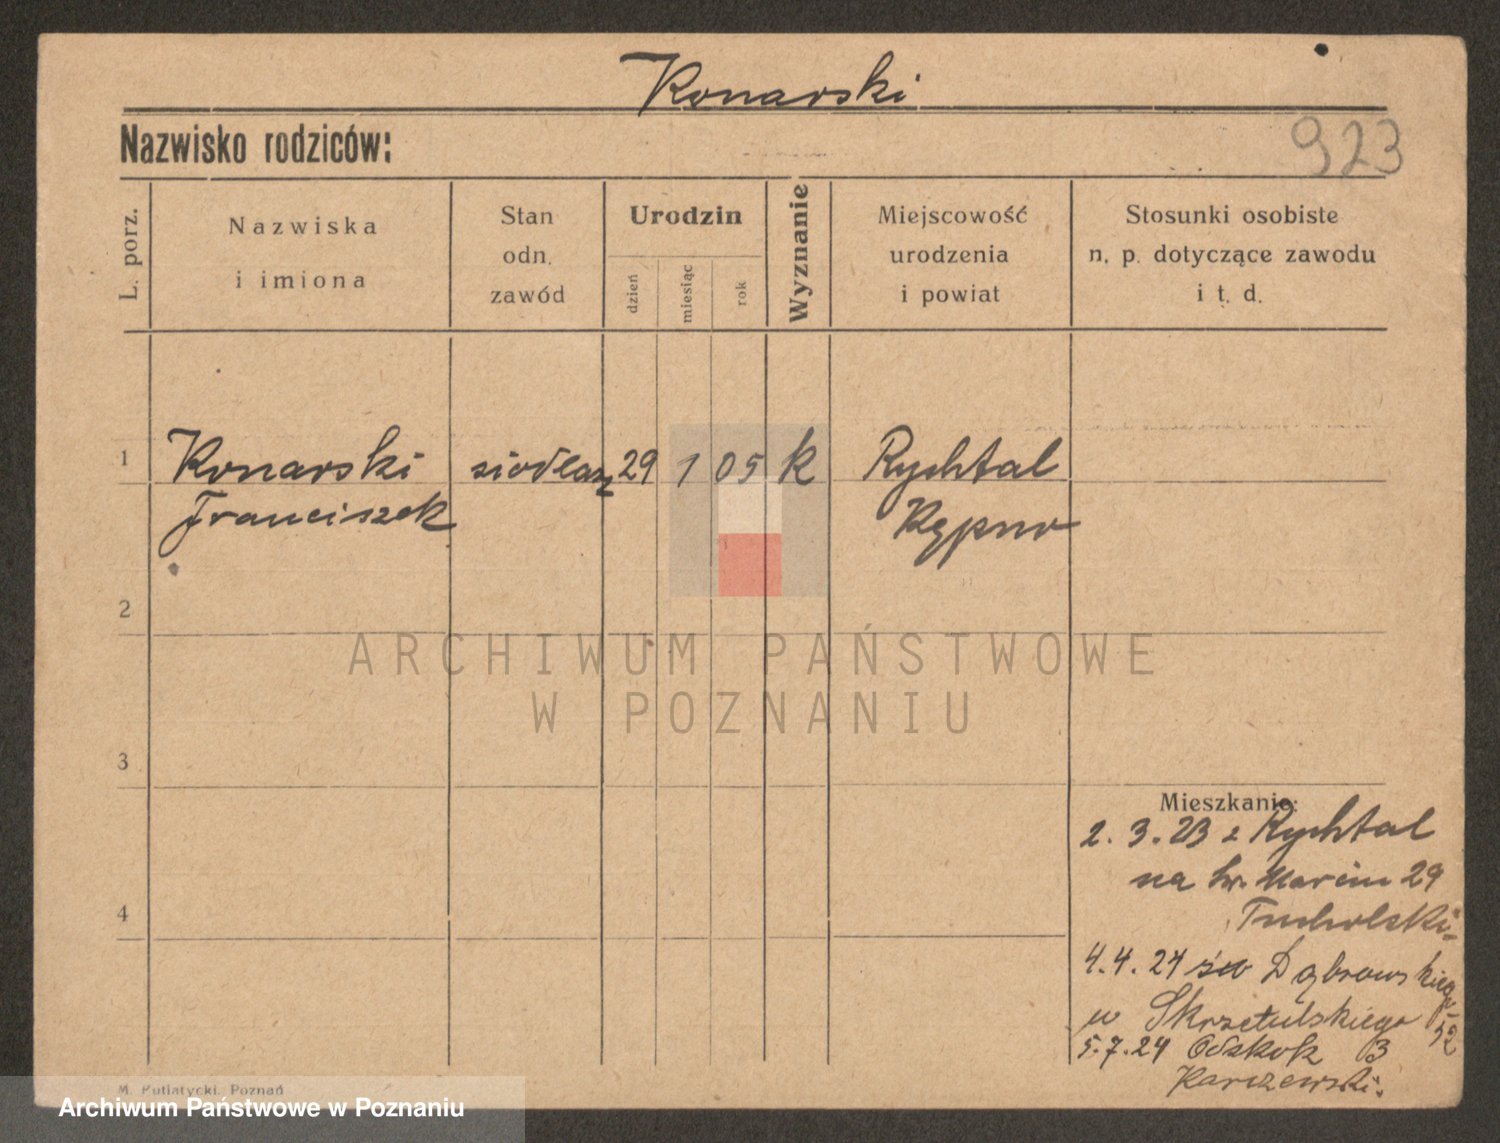 Konarski
Nazwisko rodziców:
923
L. porz.
Nazwiska
i imiona
Stan
odn.
zawód
Urodzin
dzień
miesiąc
rok
Wyznanie
Miejscowość
urodzenia
i powiat
Stosunki osobiste
n. p. dotyczące zawodu
i t. d.
1 Konarski siodlarz 29 1 05 k Rychtal
Franciszek Kępno
2
ARCHIWUM PAŃSTWOWE
W POZNANIU
3
Mieszkanie:
2. 3. 23 z Rychtal
na św. Marcin 29
Tucholski
4
4. 4. 24 Dąbrowskiego 52
u Skrzetulskiego
5. 7. 24 3
Karczewski.
M. Putiatycki, Poznań
Archiwum Państwowe w Poznaniu